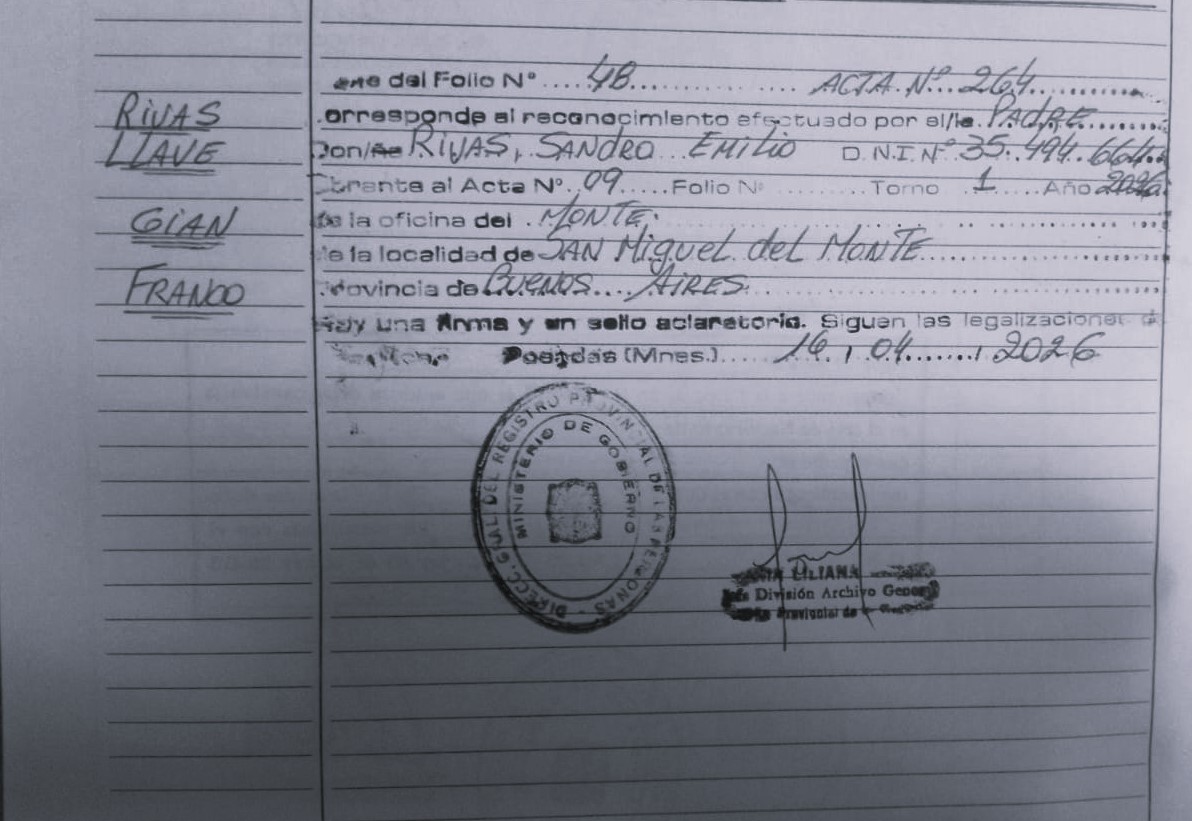 RIVAS
LLAVE
GIAN
FRANCO
del Folio N° ....48............. ACTA N° 264..........
orresponde al reconocimiento efectuado por el/la PADRE
Don/ña RIVAS, SANDRO EMILIO D.N.I. N° 35.494.664
brante al Acta N° 09..... Folio N° ........... Tomo 1 .... Año 2026
la oficina del MONTE
la localidad de SAN Miguel del MONTE
rovincia de BUENOS AIRES
Hay una firma y un sello aclaratorio. Siguen las legalizaciones
Posadas (Mnes.) 16 / 04 / 2026
DIRECC. GRAL. DEL REGISTRO PROVINCIAL DE LAS PERSONAS
MINISTERIO DE GOBIERNO
LILIANA
División Archivo General
Provincial de